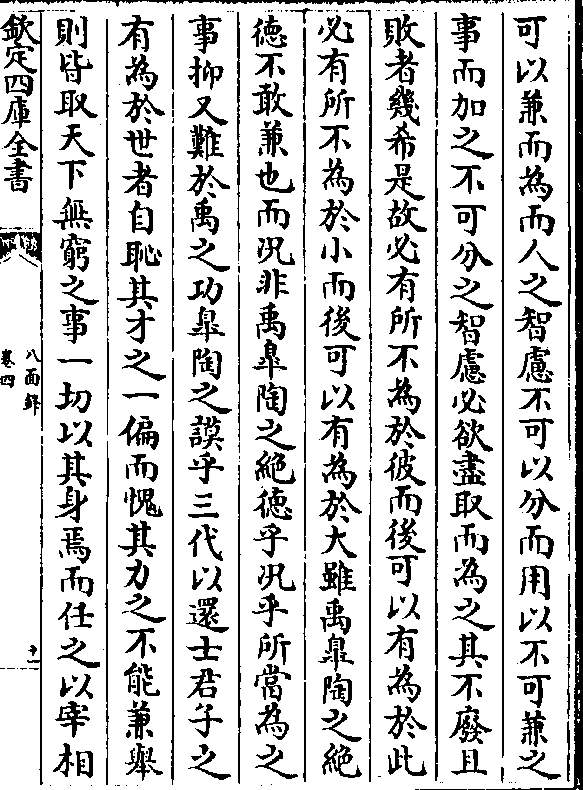 可以兼而為而人之智慮不可以分而用以不可兼之
事而加之不可分之智慮必欲盡取而為之其不廢且
敗者幾希是故必有所不為於彼而後可以有為於此
必有所不為於小而後可以有為於大雖禹臯陶之絶
徳不敢兼也而况非禹臯陶之絶徳乎况乎所當為之
事抑又難於禹之功臯陶之謨乎三代以還士君子之
有為於世者自恥其才之一偏而愧其力之不能兼舉
則皆取天下無窮之事一切以其身焉而任之以宰相
欽定四庫全書
八面鋒
卷四
十一